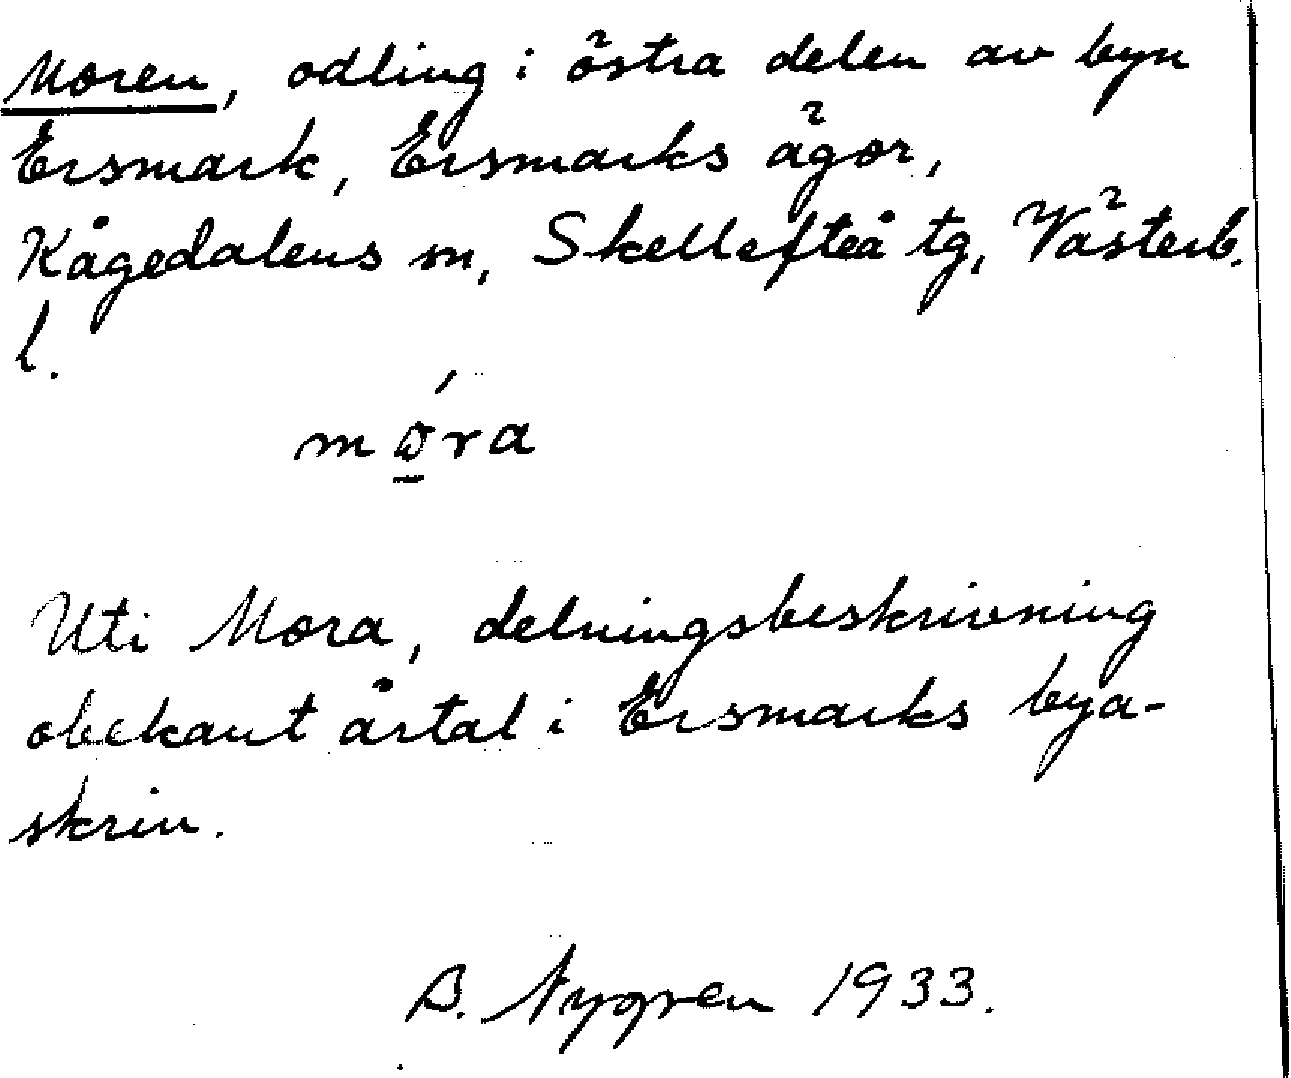 Moren, odling i östra delen av byn
Ersmark, Ersmarks ägor,
Kågedalens sn, Skellefteå tg, Västerb.
l.
móra
Uti Mora, delningsbeskrivning
obekant årtal i Ersmarks bya-
skrin.
B. Nygren 1933.